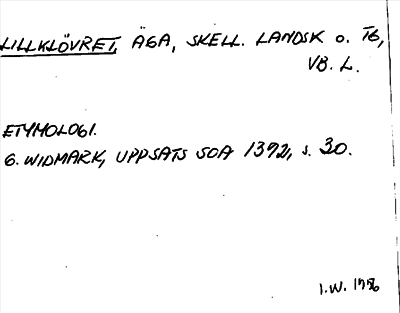 LILLKLÖVRET, ÄGA, SKELL. LANDSK O. TG,
VB. L.
ETYMOLOGI.
G. WIDMARK, UPPSATS SOA 1392, S. 30.
I.W. 1956